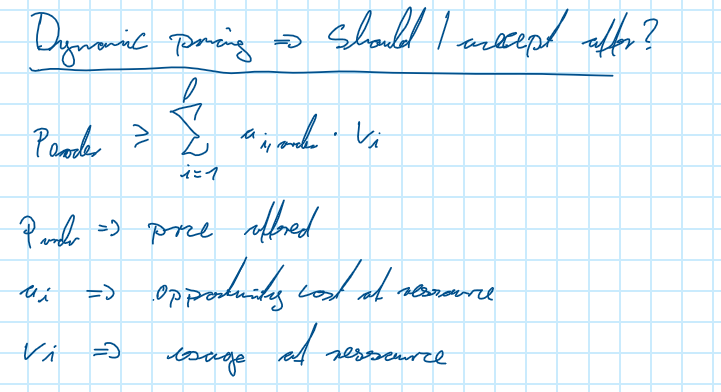 Dynamic pricing => Should I accept offer?
P_order ≥ Σ_{i=1}^{l} u_{i,order} · V_i
P_order => price offered
u_i => opportunity cost of ressource
V_i => usage of ressource